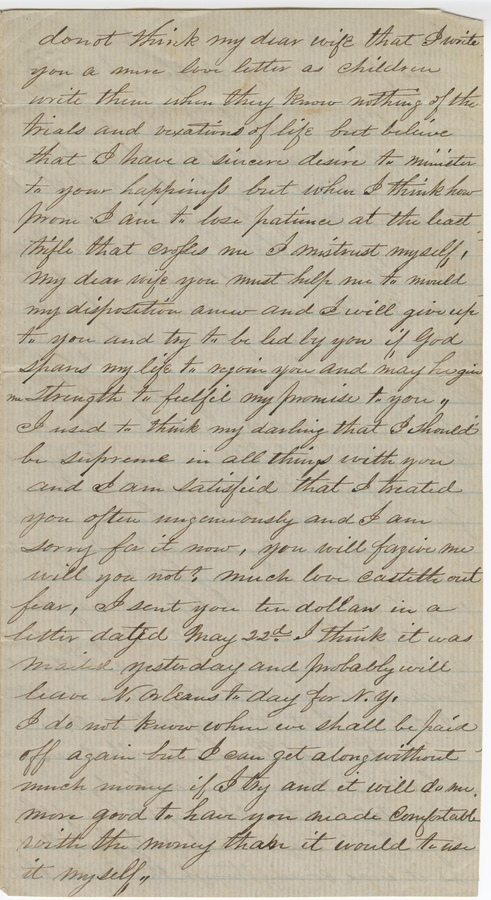 do not think my dear wife that I write
you a mere love letter as children
write them when they know nothing of the
trials and vexations of life but believe
that I have a sincere desire to minister
to your happiness but when I think how
prone I am to lose patience at the least
trifle that crosses me I mistrust myself,
My dear wife you must help me to mould
my disposition anew and I will give up
to you and try to be led by you if God
spares my life to rejoin you and may he give
me strength to fulfil my promise to you,,
I used to think my darling that I should
be supreme in all things with you
and I am satisfied that I treated
you often ungenerously and I am
sorry for it now, you will forgive me
will you not? much love casteth out
fear, I sent you ten dollars in a
letter dated May 22d I think it was
mailed yesterday and probably will
leave N. Orleans to day for N.Y.
I do not know when we shall be paid
off again but I can get along without
much money if I try and it will do me
more good to have you made comfortable
with the money than it would to use
it myself,,